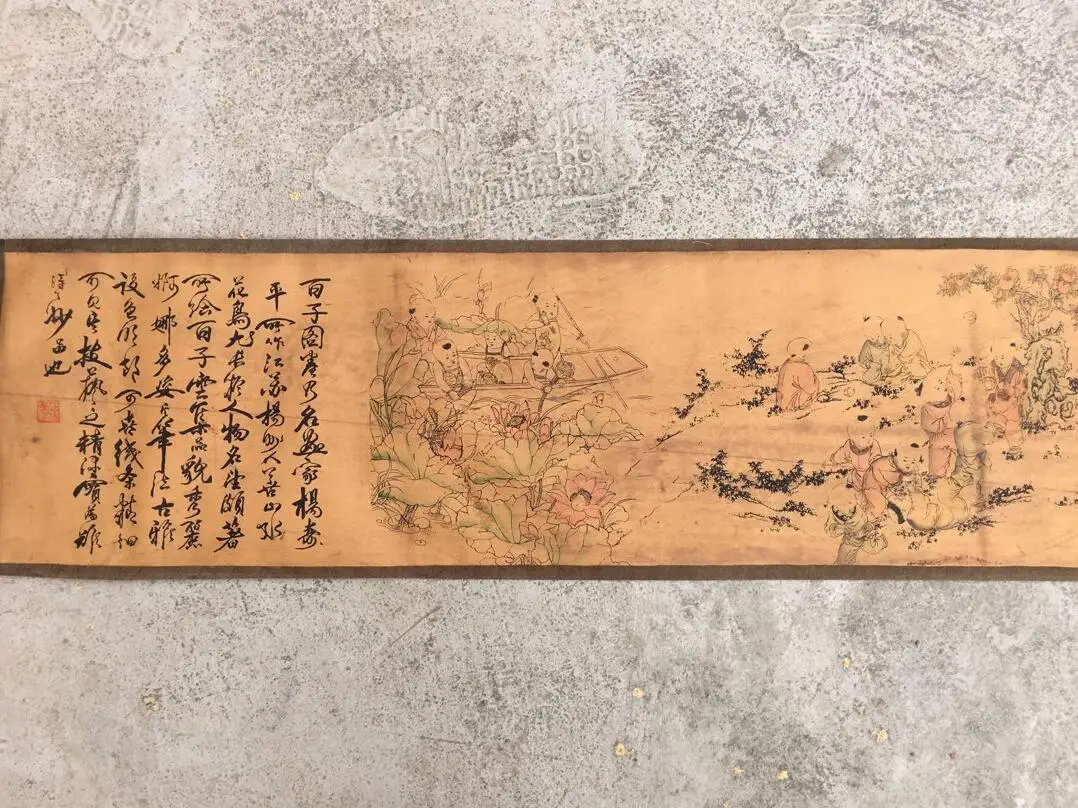 百子圖卷乃名畫家楊壽
平所作江蘇揚州人善山水
花鳥尤長於人物名望頗著
所繪百子雲集品貌秀麗
婀娜多姿筆法古雅
設色明朗可喜線条精細
可見其技藝之精深實為難
得之妙品也